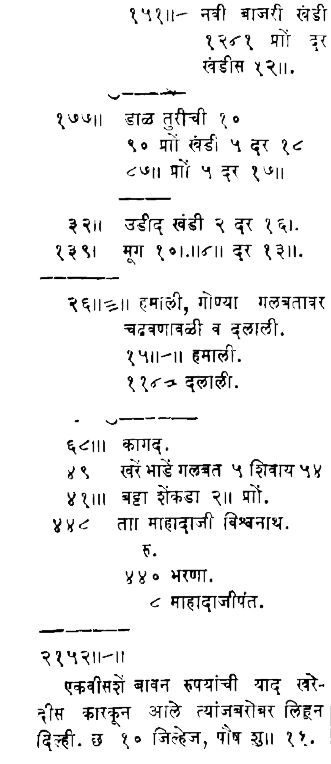 १५१॥- नवी बाजरी खंडी
१२८१ प्रों दर
खंडीस १२॥.
१७७॥ डाळ तुरीची १०
९० प्रों खंडी ५ दर १८
८७॥ प्रों ५ दर १७॥
३२॥ उडीद खंडी २ दर १६।.
१३९। मूग १०।.॥८॥ दर १३॥.
हमाली, गोण्या गलबतावर
चढवणावळी व दलाली.
१५॥-॥ हमाली.
दलाली.
६८॥। कागद.
४९ खरें भाडें गलबत ५ शिवाय ५४
४१॥। बट्टा शेंकडा २॥ प्रों.
४४८ ता॥ माहादाजी विश्वनाथ.
रु.
४४० भरणा.
८ माहादाजीपंत.
२१५२॥-॥
एकवीसशें बावन रुपयांची याद खरे-
दीस कारकून आले त्यांजबरोबर लिहून
दिल्ही. छ १० जिल्हेज, पौष शु॥ ११.